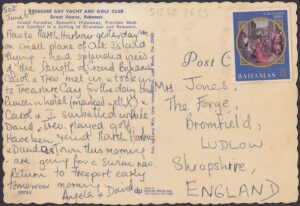 Sat
June 5
TREASURE CAY YACHT AND GOLF CLUB
Great Abaco, Bahamas
Island Paradise, Romantic Hideaway, Provides
in a Setting of Grandeur and Romance.
Flew to Marsh Harbour yesterday on
small plane of Out Island
flying - had splendid view
of the South of Grand Bahama.
Carol & met us & took us
to Treasure Cay for the day. Had
lunch in hotel (marked with X)
Carol & I sunbathed while
David & played golf.
Have been round Marsh Harbour
& Town this morning &
are going for a swim now
Return to Freeport early
tomorrow morning.
Angela & David
Post C
BAHAMAS
Mrs Jones,
The Forge,
Bromfield,
LUDLOW
Shropshire,
ENGLAND